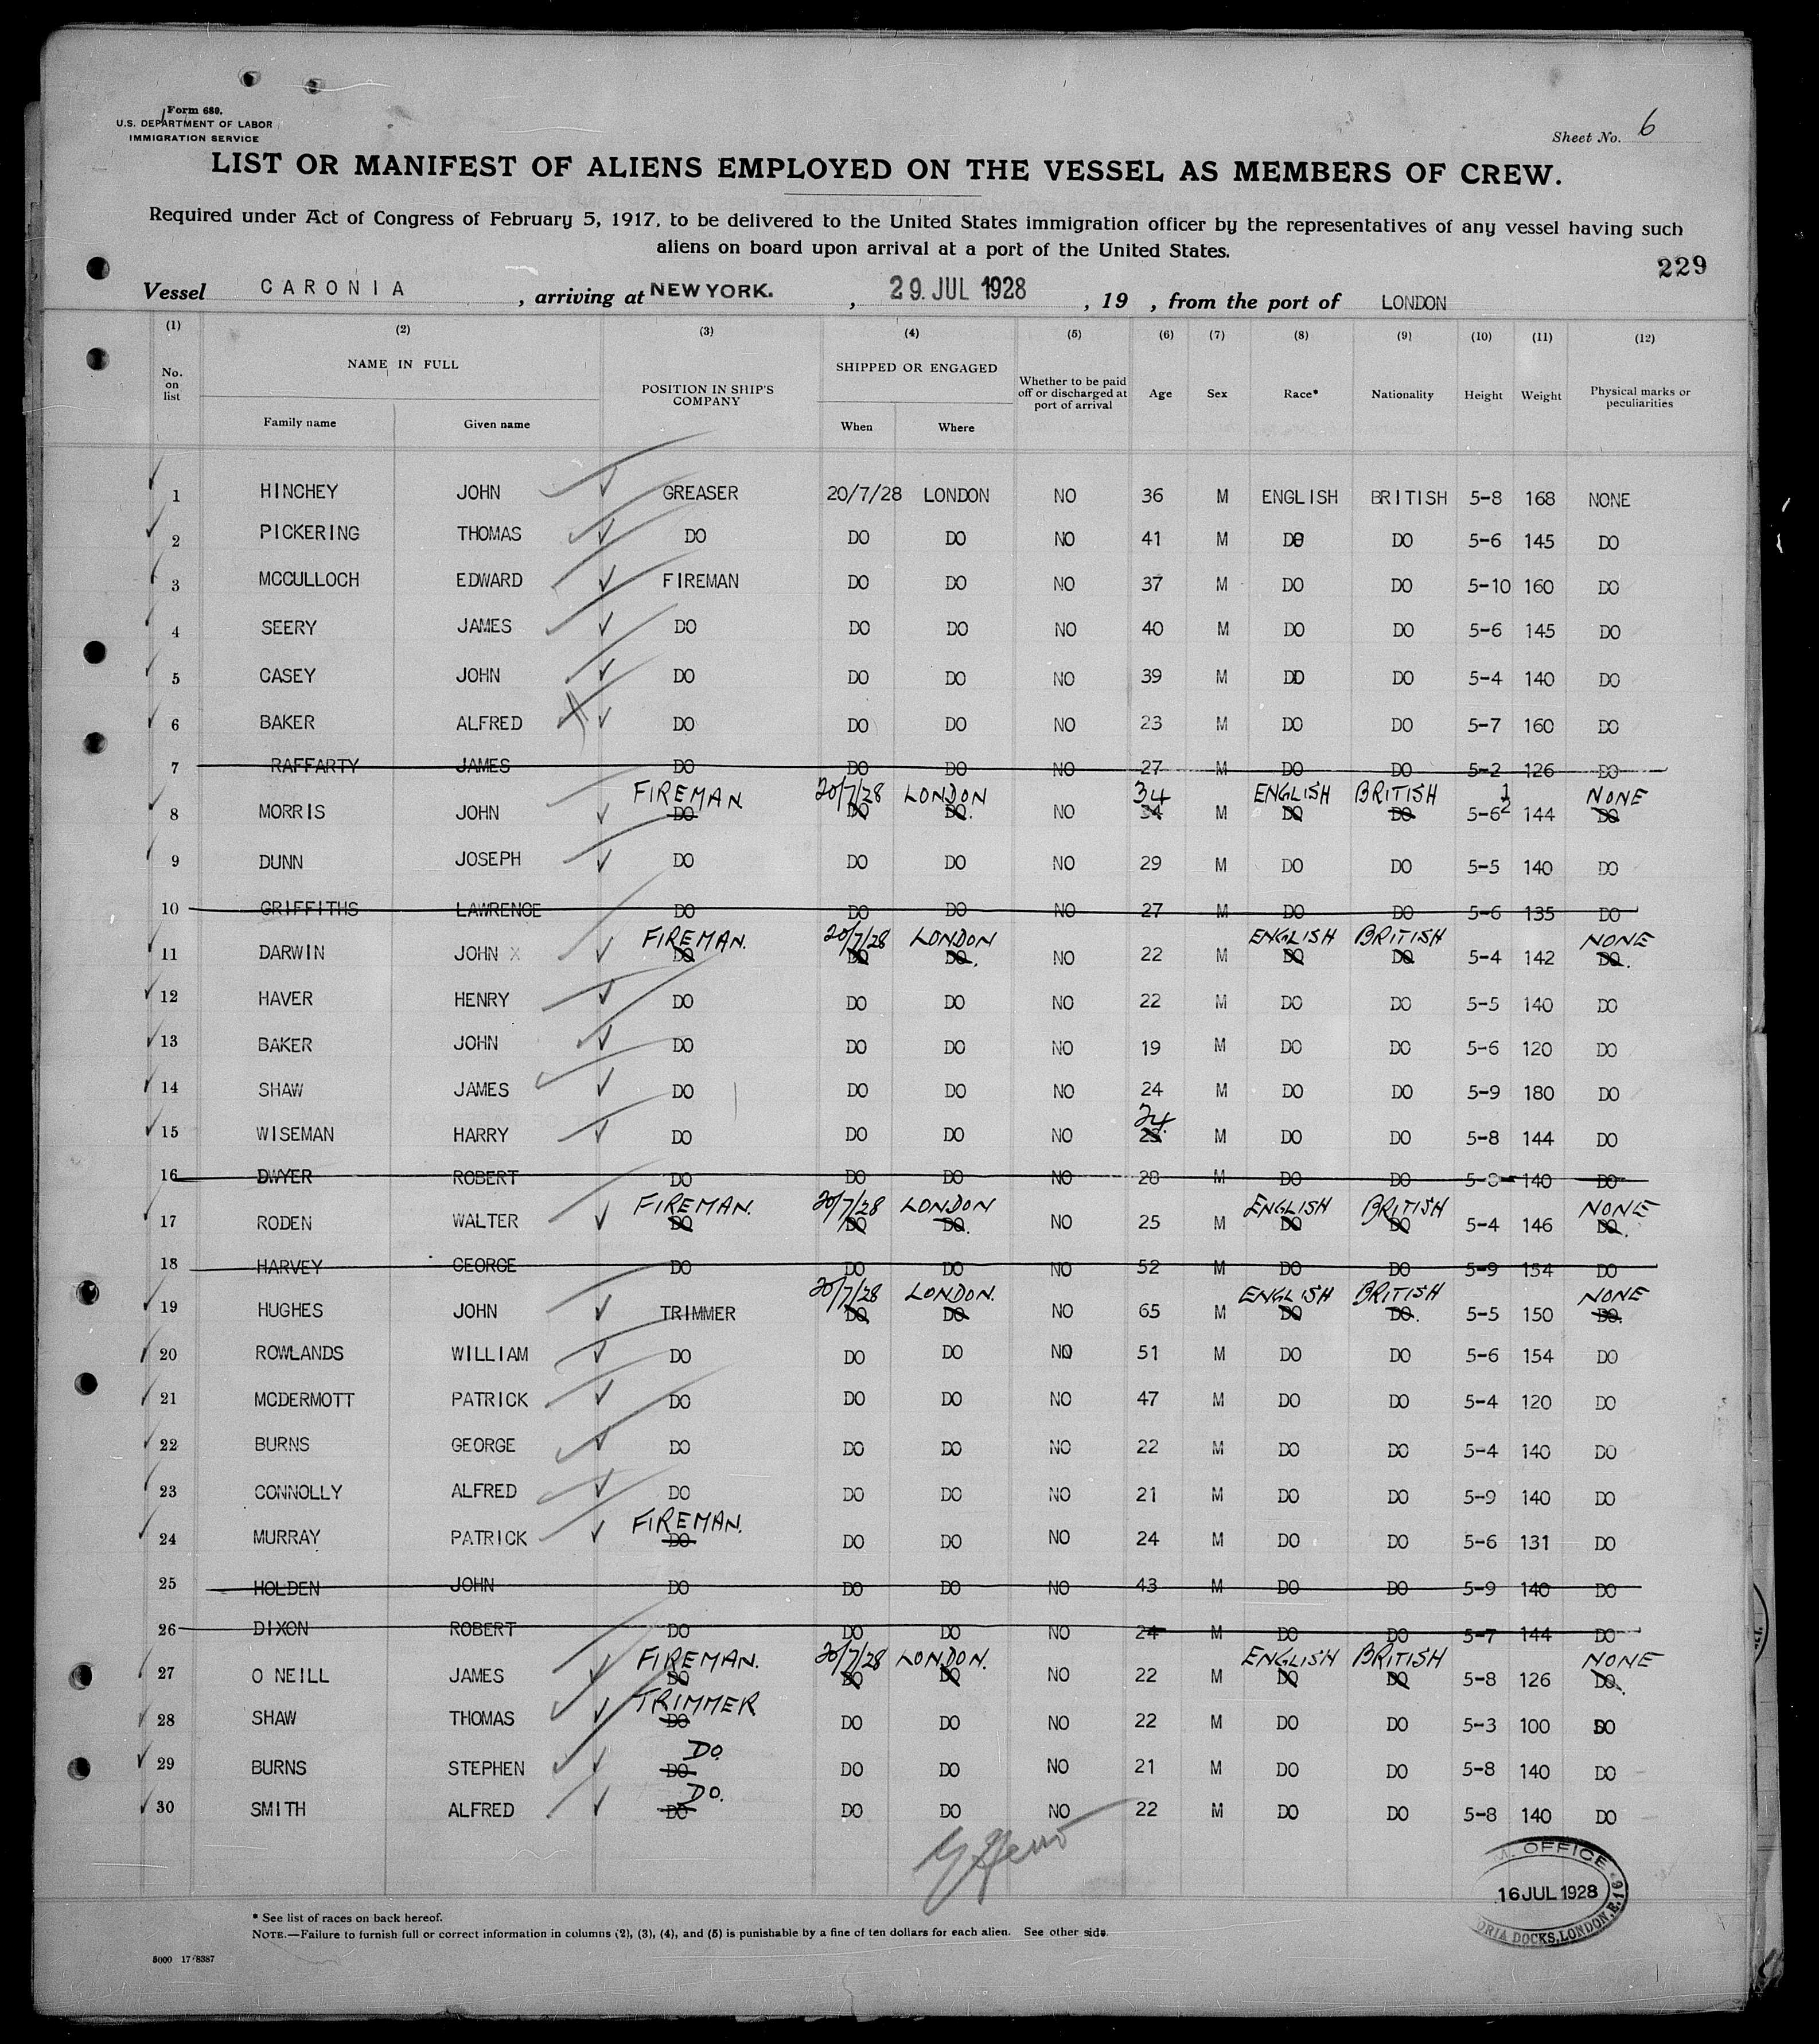 Form 689.
U.S. DEPARTMENT OF LABOR
IMMIGRATION SERVICE
Sheet No. 6
LIST OR MANIFEST OF ALIENS EMPLOYED ON THE VESSEL AS MEMBERS OF CREW.
Required under Act of Congress of February 5, 1917, to be delivered to the United States immigration officer by the representatives of any vessel having such
aliens on board upon arrival at a port of the United States.
229
Vessel CARONIA, arriving at NEW YORK., 29. JUL 1928, 19 , from the port of LONDON
(1) (2) (3) (4) (5) (6) (7) (8) (9) (10) (11) (12)
No. on list NAME IN FULL Family name Given name POSITION IN SHIP'S COMPANY SHIPPED OR ENGAGED When Where Whether to be paid off or discharged at port of arrival Age Sex Race* Nationality Height Weight Physical marks or peculiarities
1 HINCHEY JOHN GREASER 20/7/28 LONDON NO 36 M ENGLISH BRITISH 5-8 168 NONE
2 PICKERING THOMAS DO DO DO NO 41 M DO DO 5-6 145 DO
3 MCCULLOCH EDWARD FIREMAN DO DO NO 37 M DO DO 5-10 160 DO
4 SEERY JAMES DO DO DO NO 40 M DO DO 5-6 145 DO
5 CASEY JOHN DO DO DO NO 39 M DO DO 5-4 140 DO
6 BAKER ALFRED DO DO DO NO 23 M DO DO 5-7 160 DO
7 RAFFARTY JAMES DO DO DO NO 27 M DO DO 5-2 126 DO
FIREMAN 20/7/28 LONDON 34 ENGLISH BRITISH NONE
8 MORRIS JOHN DO DO DO. NO 34 M DO DO 5-6 1/2 144 DO
9 DUNN JOSEPH DO DO DO NO 29 M DO DO 5-5 140 DO
10 GRIFFITHS LAWRENCE DO DO DO NO 27 M DO DO 5-6 135 DO
FIREMAN. 20/7/28 LONDON ENGLISH BRITISH NONE
11 DARWIN JOHN X DO DO DO. NO 22 M DO DO 5-4 142 DO.
12 HAVER HENRY DO DO DO NO 22 M DO DO 5-5 140 DO
13 BAKER JOHN DO DO DO NO 19 M DO DO 5-6 120 DO
14 SHAW JAMES DO DO DO NO 24 M DO DO 5-9 180 DO
24.
15 WISEMAN HARRY DO DO DO NO 23 M DO DO 5-8 144 DO
16 DWYER ROBERT DO DO DO NO 28 M DO DO 140 DO
FIREMAN. 20/7/28 LONDON ENGLISH BRITISH NONE
17 RODEN WALTER DO DO DO. NO 25 M DO DO 5-4 146 DO.
18 HARVEY GEORGE DO DO DO NO 52 M DO DO 5-9 154 DO
20/7/28 LONDON. ENGLISH BRITISH NONE
19 HUGHES JOHN TRIMMER DO DO NO 65 M DO DO. 5-5 150 DO.
20 ROWLANDS WILLIAM DO DO DO NO 51 M DO DO 5-6 154 DO
21 MCDERMOTT PATRICK DO DO DO NO 47 M DO DO 5-4 120 DO
22 BURNS GEORGE DO DO DO NO 22 M DO DO 5-4 140 DO
23 CONNOLLY ALFRED DO DO DO NO 21 M DO DO 5-9 140 DO
FIREMAN.
24 MURRAY PATRICK DO DO DO NO 24 M DO DO 5-6 131 DO
25 HOLDEN JOHN DO DO DO NO 43 M DO DO 5-9 140 DO
26 DIXON ROBERT DO DO DO NO 24 M DO DO 5-7 144 DO
FIREMAN. 20/7/28 LONDON. ENGLISH BRITISH NONE
27 O NEILL JAMES DO DO DO NO 22 M DO DO 5-8 126 DO.
TRIMMER
28 SHAW THOMAS DO DO DO NO 22 M DO DO 5-3 100 DO
DO.
29 BURNS STEPHEN DO DO DO NO 21 M DO DO 5-8 140 DO
DO.
30 SMITH ALFRED DO DO DO NO 22 M DO DO 5-8 140 DO
OFFICE
16 JUL 1928
DOCKS, LONDON, E.16
* See list of races on back hereof.
NOTE.—Failure to furnish full or correct information in columns (2), (3), (4), and (5) is punishable by a fine of ten dollars for each alien. See other side.
5000 17/8387